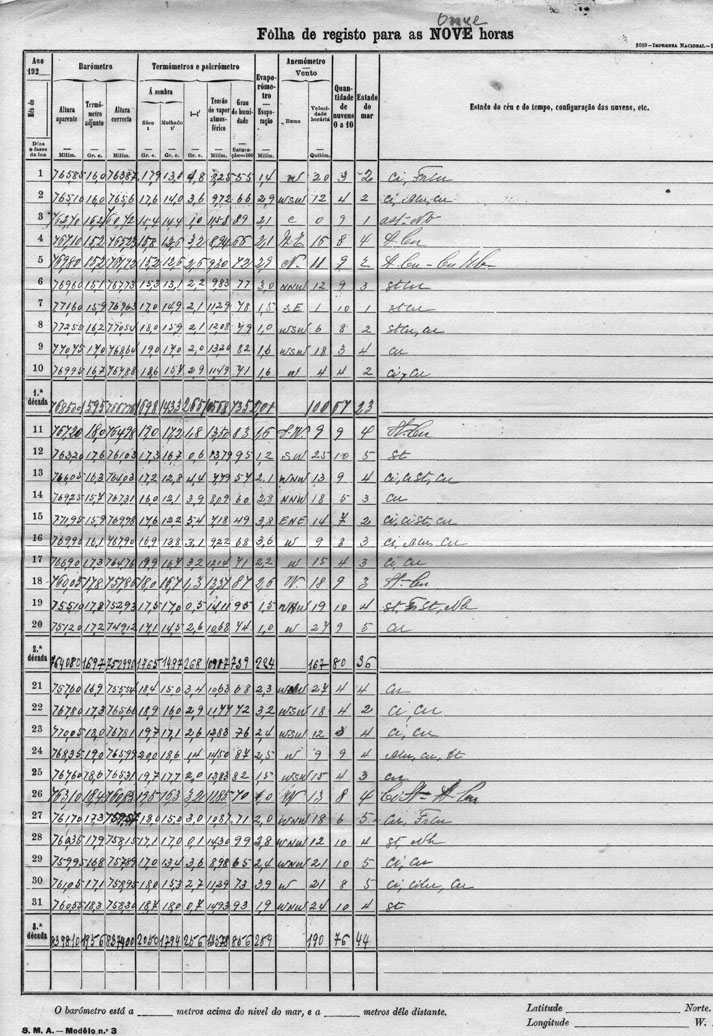 onze
Folha de registo para as NOVE horas
Ano 192
Mês de
Dias e fases da lua
Barómetro
Termómetros e psicrómetro
Evaporómetro — Evaporação
Anemómetro — Vento
Quantidade de nuvens 0 a 10
Estado do mar
Estado do céu e do tempo, configuração das nuvens, etc.
Altura aparente
Termómetro adjunto
Altura correcta
Á sombra
Sêco t
Molhado t'
t—t'
Tensão do vapor atmosférico
Grau de humidade
Rumo
Velocidade horária
Milim. Gr. c. Milim. Gr. c. Gr. c. Gr. c. Milim. Milim. Quilóm.
1 76585 16,0 76387 17,9 13,0 4,8 55 1,4 W 20 3 2 Ci, Frcu
2 76510 16,0 7656 17,6 14,0 3,6 972 66 2,9 WSW 12 4 2
3 15,4 14,4 1,0 1158 89 2,1 C 0 9 1
4 76710 15,2 3,2 66 2,1 N.E 16 8 4
5 76980 15,2 15,2 12,6 2,6 930 72 2,9 N. 11 9 2
6 76960 15,1 76773 15,3 13,1 2,2 983 77 3,0 NNW 12 9 3 St cu
7 77160 15,9 76963 17,0 14,9 2,1 1129 78 1,5 SE 1 10 1 St cu
8 77250 16,2 77054 18,0 15,9 2,1 1208 79 1,0 WSW 6 8 2 St cu, cu
9 77075 17,0 76864 19,0 17,0 2,0 1320 82 1,6 WSW 18 3 4 cu
10 76995 16,7 76788 18,6 15,7 2,9 1149 71 1,6 W 4 4 2 Ci, cu
1.ª década 1595 1698 1433 265 735 100 57 23
11 76720 18,0 76498 19,0 17,2 1,8 1350 83 1,6 S.W. 9 9 4 St-Cu
12 76320 17,6 76103 17,3 16,7 0,6 1379 95 1,2 SW 25 10 5 St
13 76605 16,3 76403 17,2 12,8 4,4 779 57 2,1 WNW 13 9 4 Ci, ci St, cu
14 76925 15,7 76731 16,0 12,1 3,9 809 60 2,8 NNW 18 5 3 cu
15 77095 15,9 76998 17,6 12,2 5,4 718 49 3,8 ENE 14 7 2 Ci, ci St, cu
16 76990 16,1 76790 16,9 13,8 3,1 922 68 3,6 W 9 8 3
17 76690 17,3 76476 19,9 16,7 3,2 1214 71 2,2 W 15 4 3 Ci, cu
18 76005 17,8 75786 18,0 16,7 1,3 1337 87 2,6 W. 18 9 3 St-Cu
19 75510 17,8 75293 17,5 17,0 0,5 1411 95 1,5 WNW 19 10 4
20 75120 17,2 74912 17,1 14,5 2,6 1068 74 1,0 W 27 9 5 cu
2.ª década 764080 1697 1765 1497 268 10987 739 224 167 80 36
21 75760 16,9 75554 18,4 15,0 3,4 1063 68 2,3 WNW 27 4 4 cu
22 76780 17,3 76566 18,9 16,0 2,9 1177 72 3,2 WSW 18 4 2 Ci, cu
23 19,7 17,1 2,6 1283 76 2,4 WSW 12 3 4 Ci, cu
24 76835 19,0 76599 20,0 18,6 1,4 1450 87 2,5 W 9 9 4
25 76760 18,6 76531 19,7 17,7 2,0 1383 82 1,5 WSW 15 4 3 cu
26 76310 18,4 76083 19,5 16,3 3,2 1185 70 W 13 8 4
27 76170 17,3 75957 18,0 15,0 3,0 1087 71 2,0 WNW 18 6 5 cu, Frcu
28 76035 17,9 75815 17,1 17,0 0,1 1430 99 2,8 WNW 12 10 4 St, Nb
29 75995 16,8 75789 17,0 13,4 3,6 898 65 2,4 WNW 21 10 5 Ci, cu
30 76105 17,1 75895 18,0 15,3 2,7 1129 73 3,9 W 21 8 5
31 76055 18,3 75830 18,7 18,0 0,7 1493 93 1,9 WNW 24 10 4 St
3.ª década 839810 1956 837400 2050 1794 256 13578 856 259 190 76 44
O barómetro está a ______ metros acima do nivel do mar, e a ______ metros dêle distante.
Latitude ______ Norte.
Longitude ______ W.
S. M. A. — Modêlo n.º 3